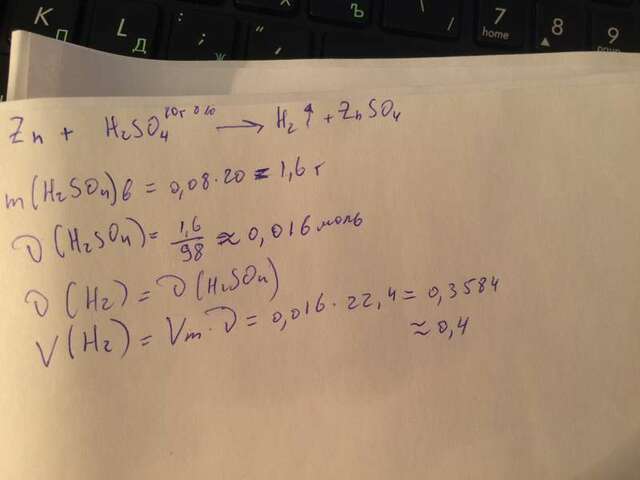 Zn + H₂SO₄ → H₂↑ + ZnSO₄
m(H₂SO₄)в = 0,08·20 = 1,6 г
ν(H₂SO₄) = 1,6/98 ≈ 0,016 моль
ν(H₂) = ν(H₂SO₄)
V(H₂) = Vm·ν = 0,016·22,4 = 0,3584
≈ 0,4
K
L
Д
;
ж
"
Ъ
\
/
7
home
8
9